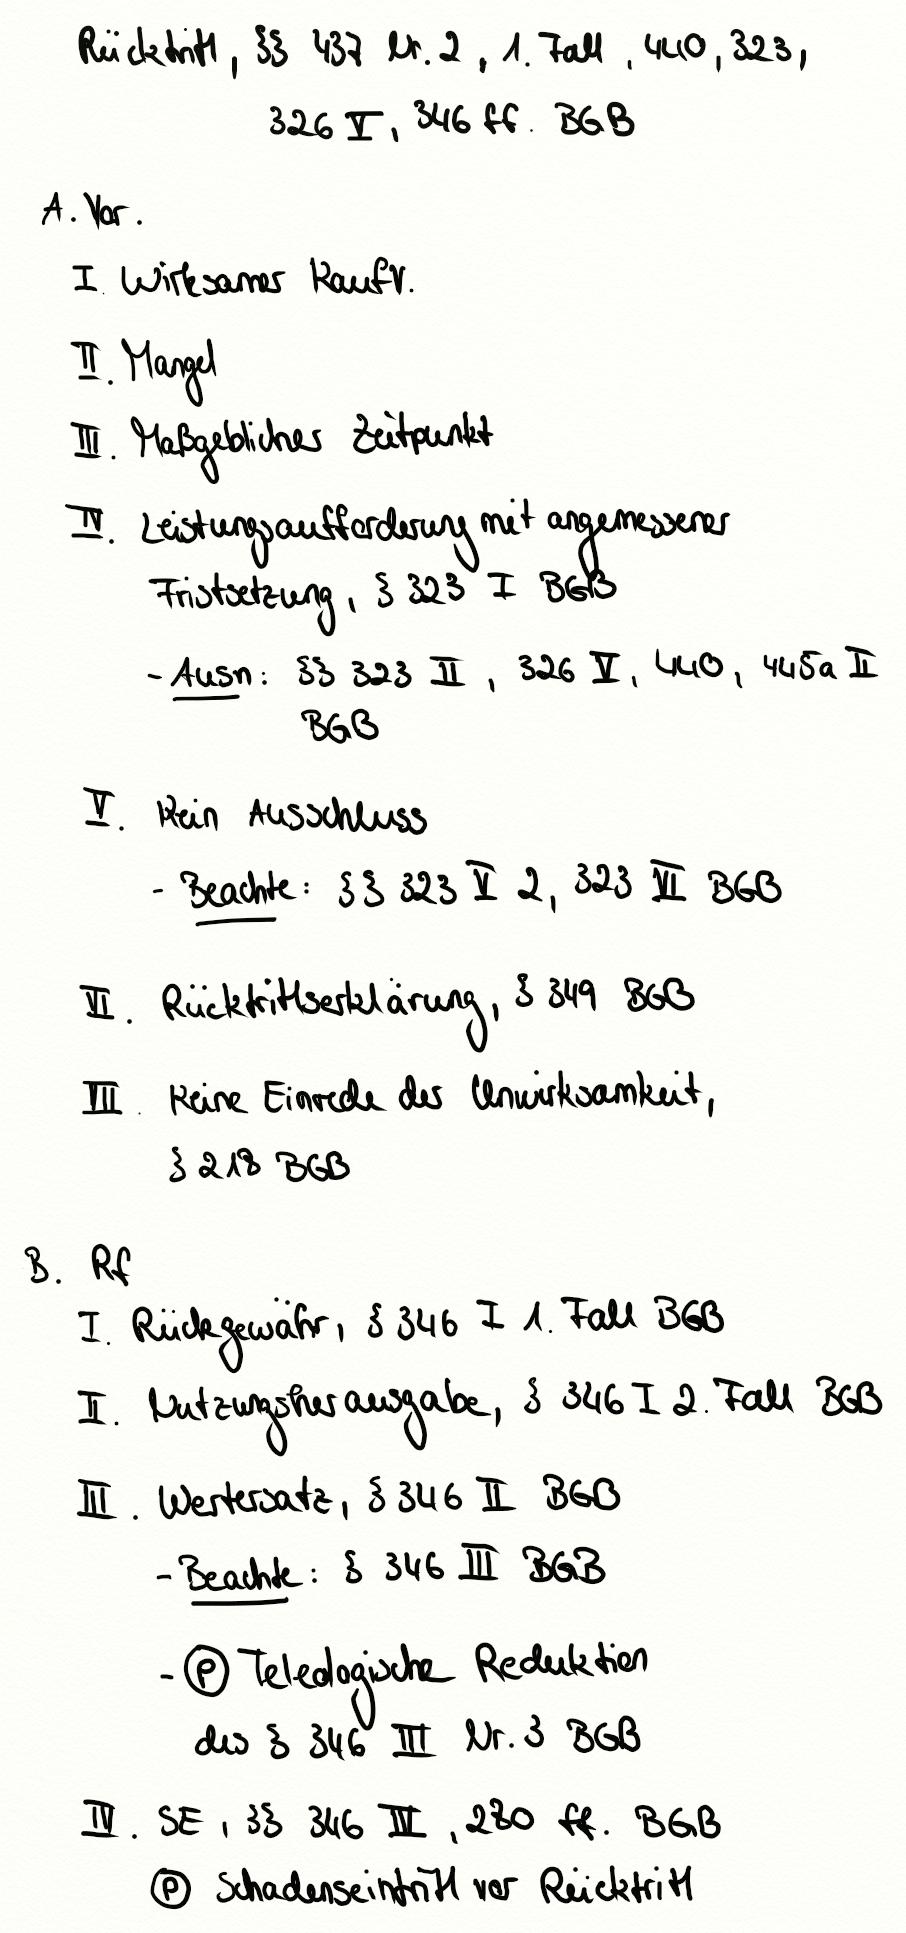 Rücktritt, §§ 437 Nr. 2, 1. Fall, 440, 323,
326 V, 346 ff. BGB
A. Vor.
I. Wirksamer Kaufv.
II. Mangel
III. Maßgeblicher Zeitpunkt
IV. Leistungsaufforderung mit angemessener
Fristsetzung, § 323 I BGB
- Ausn: §§ 323 II, 326 V, 440, 445a II
BGB
V. Kein Ausschluss
- Beachte: §§ 323 V 2, 323 VI BGB
VI. Rücktrittserklärung, § 349 BGB
VII. Keine Einrede der Unwirksamkeit,
§ 218 BGB
B. Rf
I. Rückgewähr, § 346 I 1. Fall BGB
II. Nutzungsherausgabe, § 346 I 2. Fall BGB
III. Wertersatz, § 346 II BGB
- Beachte: § 346 III BGB
- Ⓟ Teleologische Reduktion
des § 346 III Nr. 3 BGB
IV. SE, §§ 346 IV, 280 ff. BGB
Ⓟ Schadenseintritt vor Rücktritt